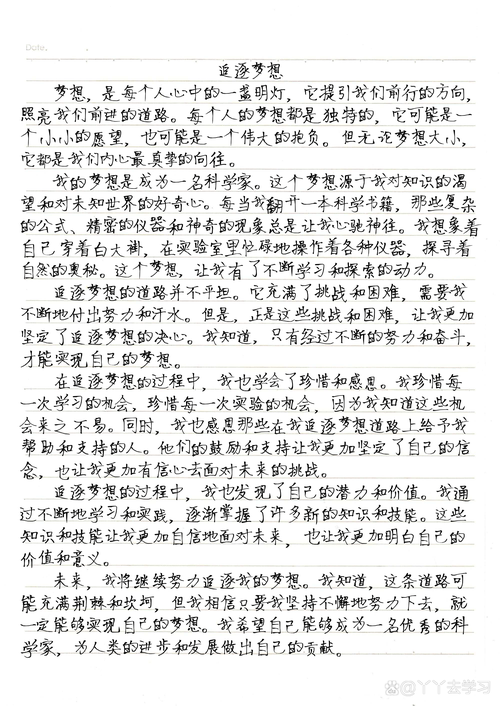 Date.
追逐梦想
梦想，是每个人心中的一盏明灯，它提引我们前行的方向，
照亮我们前进的道路。每个人的梦想都是独特的，它可能是一
个小小的愿望，也可能是一个伟大的抱负。但无论梦想大小，
它都是我们内心最真挚的向往。
我的梦想是成为一名科学家。这个梦想源于我对知识的渴
望和对未知世界的好奇心。每当我翻开一本科学书籍，那些复杂
的公式、精密的仪器和神奇的现象总是让我心驰神往。我想象着
自己穿着白大褂，在实验室里忙碌地操作着各种仪器，探寻着
自然的奥秘。这个梦想，让我有了不断学习和探索的动力。
追逐梦想的道路并不平坦。它充满了挑战和困难，需要我
不断地付出努力和汗水。但是，正是这些挑战和困难，让我更加
坚定了追逐梦想的决心。我知道，只有经过不断的努力和奋斗，
才能实现自己的梦想。
在追逐梦想的过程中，我也学会了珍惜和感恩。我珍惜每
一次学习的机会，珍惜每一次实验的机会，因为我知道这些机
会来之不易。同时，我也感恩那些在我追逐梦想道路上给予我
帮助和支持的人。他们的鼓励和支持让我更加坚定了自己的信
念，也让我更加有信心去面对未来的挑战。
追逐梦想的过程中，我也发现了自己的潜力和价值。我通
过不断地学习和实践，逐渐掌握了许多新的知识和技能。这些
知识和技能让我更加自信地面对未来，也让我更加明白自己的
价值和意义。
未来，我将继续努力追逐我的梦想。我知道，这条道路可
能充满荆棘和坎坷，但我相信只要我坚持不懈地努力下去，就
一定能够实现自己的梦想。我希望自己能够成为一名优秀的科
学家，为人类的进步和发展做出自己的贡献。
@丫丫去学习